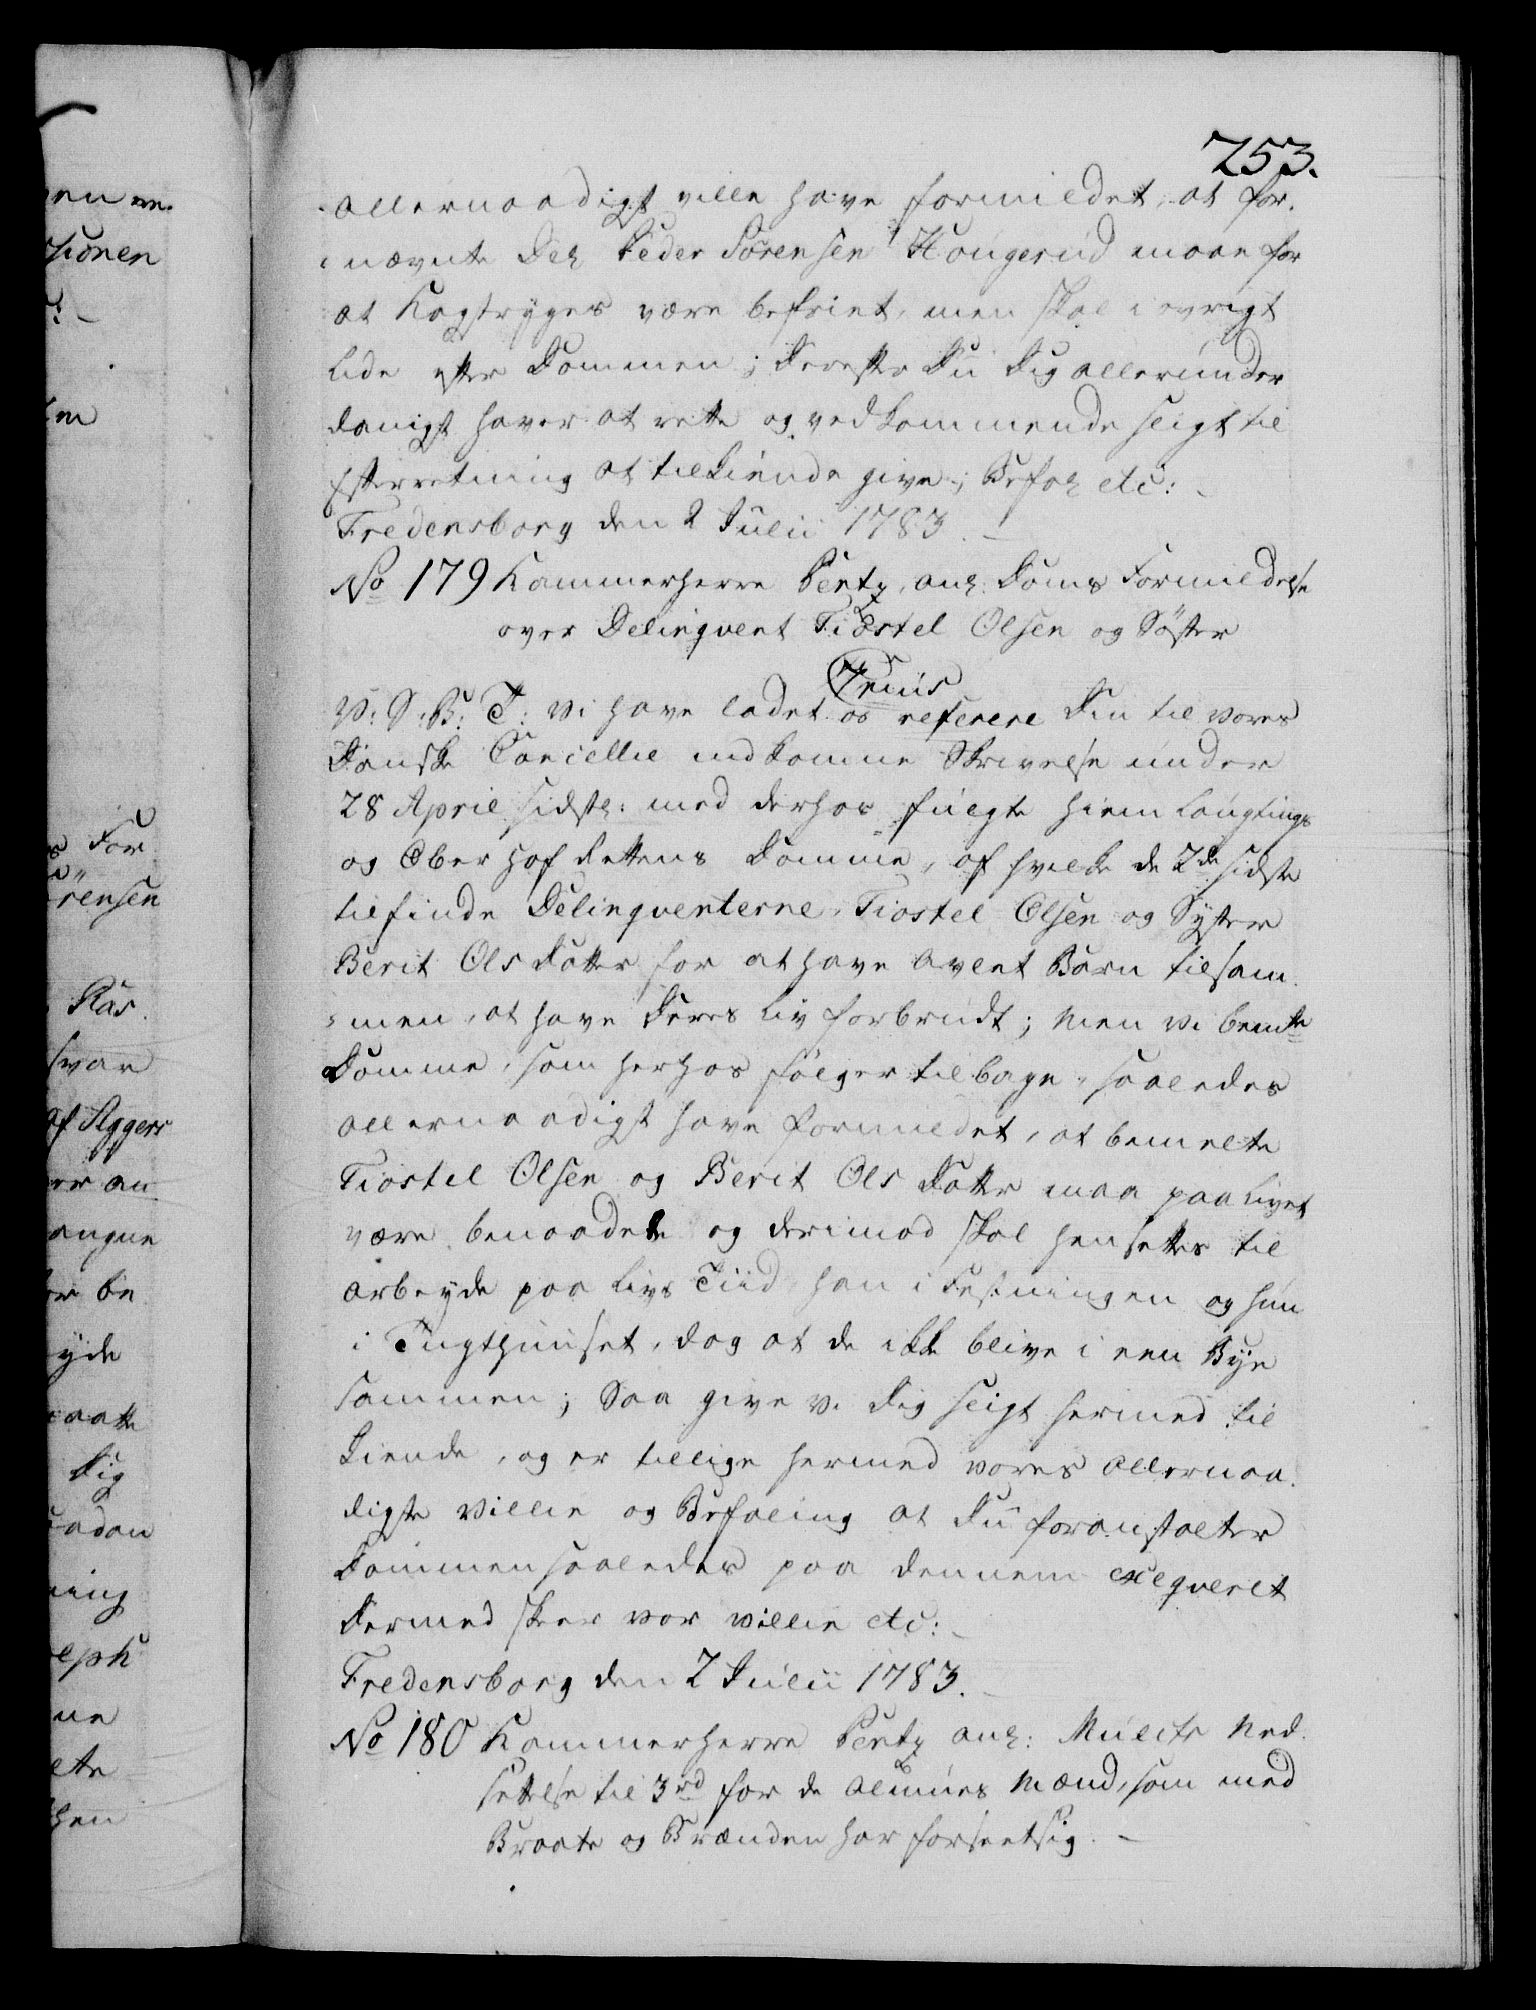 253.
allernaadigst ville have formildet, at for-
nævnte Del: Peder Sörensen Hougerud maae for
at Kagstryges være befriet, men skal i øvrigt
lide efter Dommen; Derefter Du Dig allerunder
danigst haver at rette og vedkommende sligt til
Efterretning at tilkiende give; Befal: etc:
Fredensborg den 2 Julii 1783.
No 179 Kammerherre Pentz, anl: Doms Formildelse
over Delinqvent Tiostel Olsen og Söster
V: S: B: T: Vi have ladet os referere Din til vores
Danske Cancellie indkomne Skrivelse under
28 April sidstl: med derhos fulgte Hiem Laugtings
og Ober Hof Rettens Domme, af hvilke de 2de sidste
tilfinde Delinqventerne Tiostel Olsen og Syster
Berit Olsdatter for at have avlet Barn tilsam-
men, at have deres Liv forbrudt; Men vi bemte
Domme, som herhos følger tilbage, saaledes
allernaadigst have formildet, at bemelte
Tiostel Olsen og Berit Ols Datter maa paa Livet
være benaadede og derimod skal hensettes til
arbeyde paa Livs Tiid, han i Festningen og hun
i Tugthuuset, dog at de ikke blive i een Bye
sammen; Saa give vi Dig sligt hermed til
kiende, og er tillige hermed vores allernaa-
digste Villie og Befaling at Du foranstalter
Dommen saaledes paa dennem exeqveret
Dermed skeer vor Villie etc:
Fredensborg den 2 Julii 1783.
No 180 Kammerherre Pentz anl: Mulcts Ned-
settelse til 3 rd for de Almues Mænd, som med
Braate og Brænden har forseet sig.